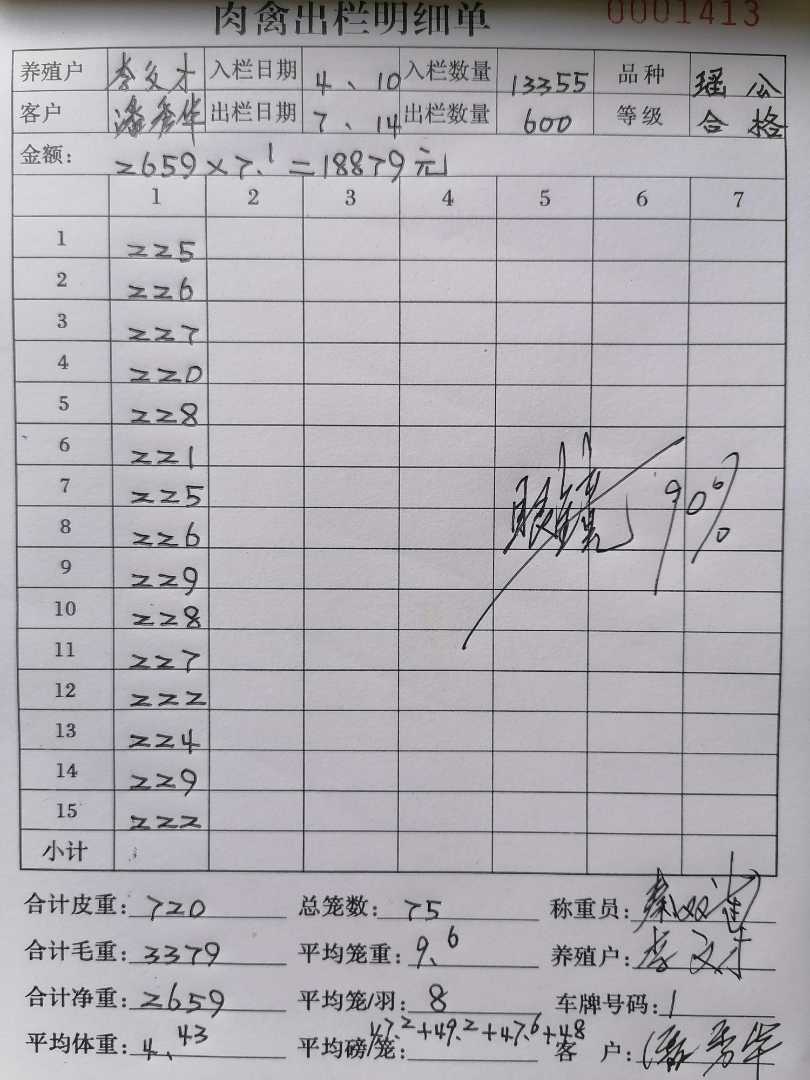 肉禽出栏明细单 0001413
养殖户 李文才 入栏日期 4、10 入栏数量 13355 品种 瑶公
客户 潘秀华 出栏日期 7、14 出栏数量 600 等级 合格
金额: 2659×7.1=18879元
1 2 3 4 5 6 7
1 225
2 226
3 227
4 220
5 228
6 221
7 225
8 226
9 229
10 228
11 227
12 222
13 224
14 229
15 222
小计
90%
合计皮重: 720 总笼数: 75 称重员:
合计毛重: 3379 平均笼重: 9.6 养殖户: 李文才
合计净重: 2659 平均笼/羽: 8 车牌号码: 1
平均体重: 4.43 平均磅/笼: 47.2+49.2+47.6+48 客户: 潘秀华